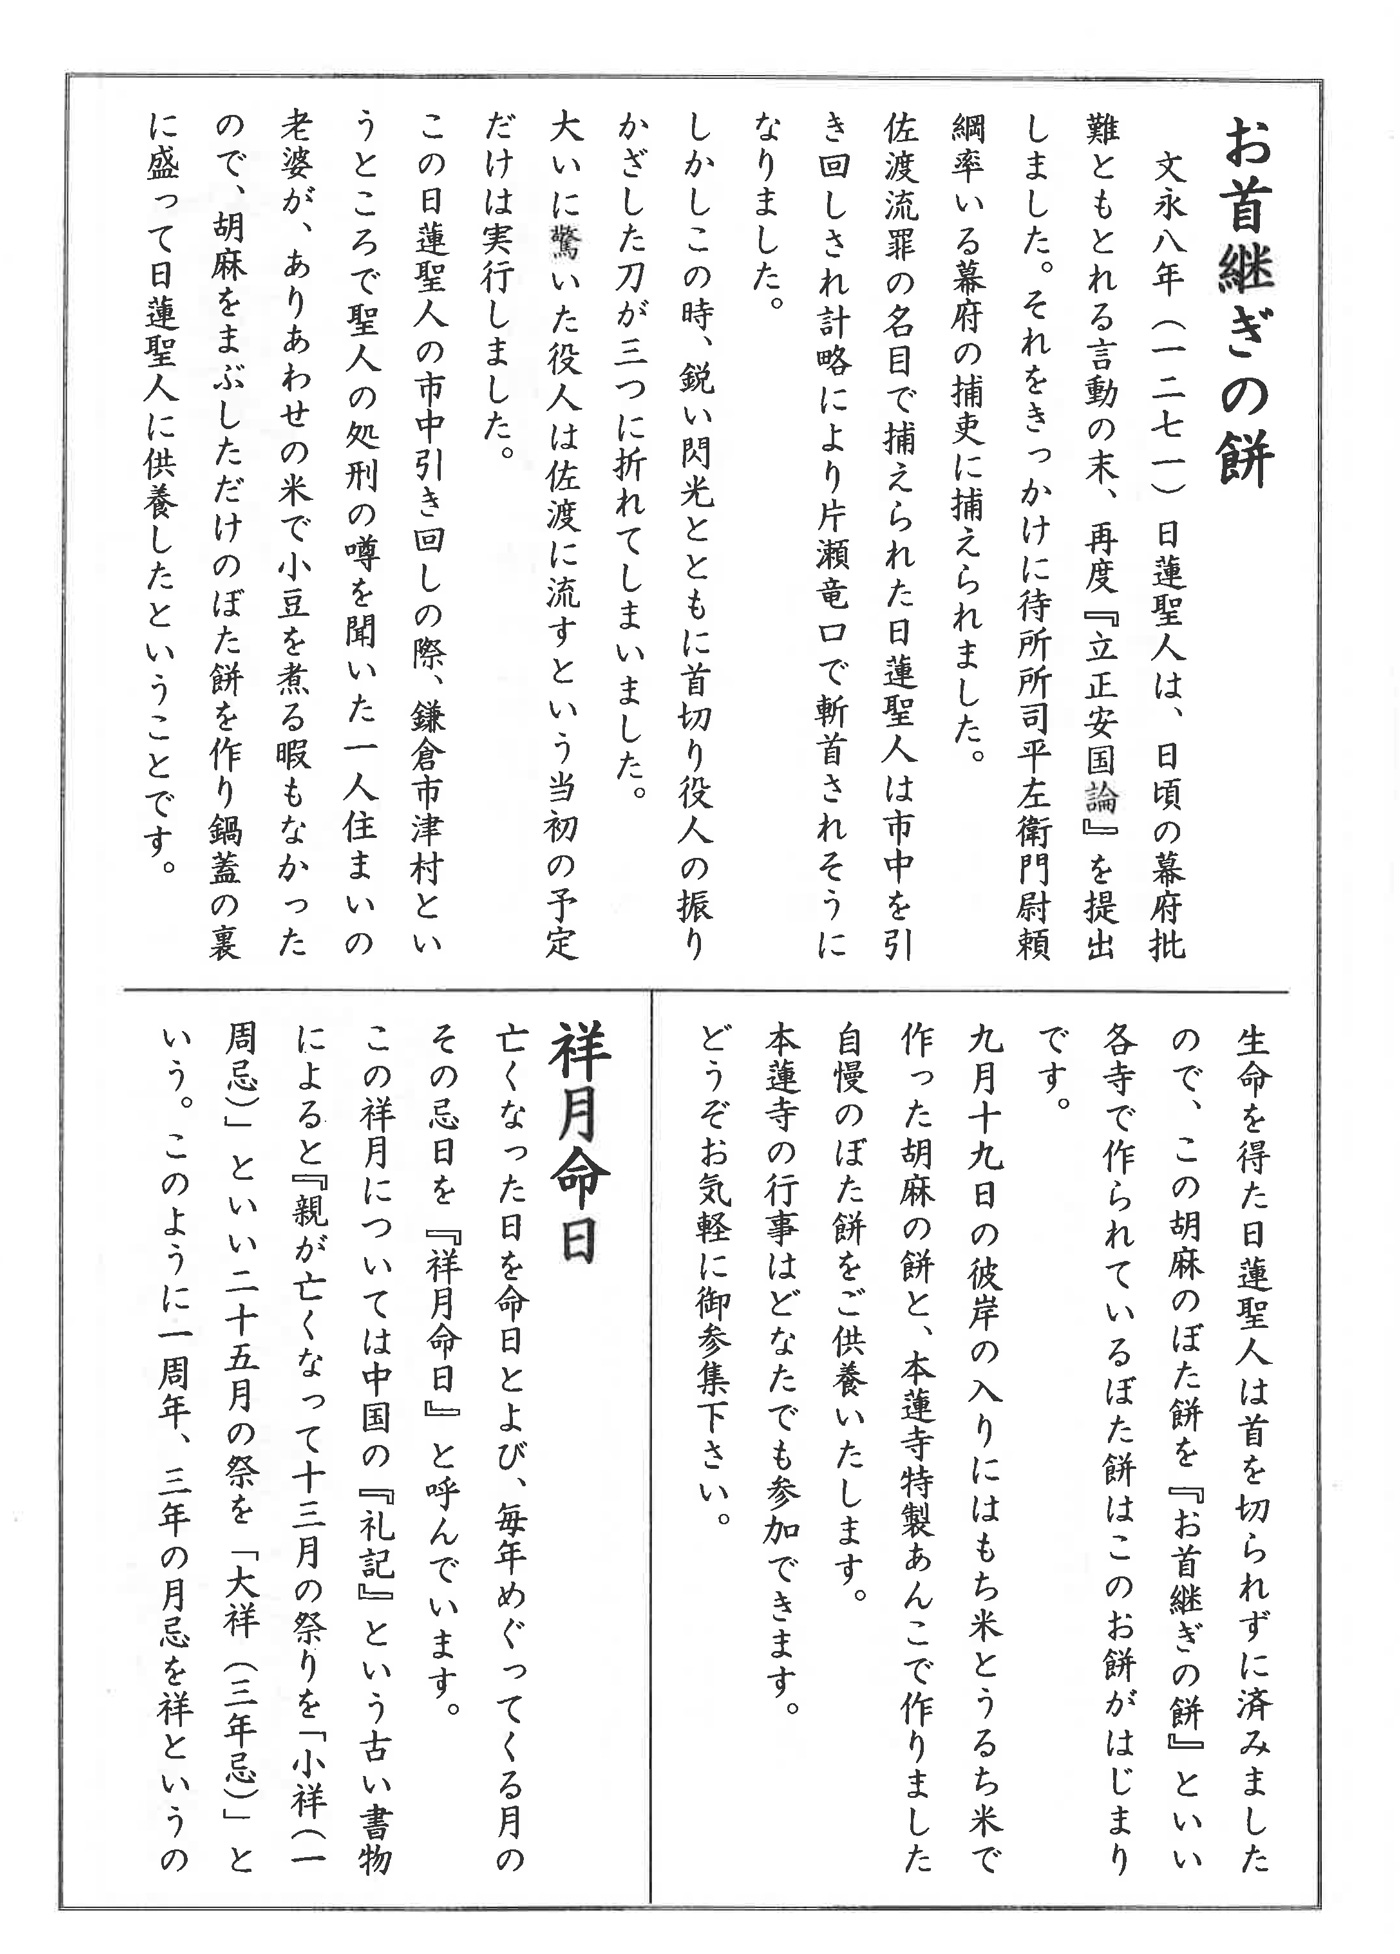 お首継ぎの餅
文永八年（一二七一）日蓮聖人は、日頃の幕府批
難ともとれる言動の末、再度『立正安国論』を提出
しました。それをきっかけに待所所司平左衛門尉頼
綱率いる幕府の捕吏に捕えられました。
佐渡流罪の名目で捕えられた日蓮聖人は市中を引
き回しされ計略により片瀬竜口で斬首されそうに
なりました。
しかしこの時、鋭い閃光とともに首切り役人の振り
かざした刀が三つに折れてしまいました。
大いに驚いた役人は佐渡に流すという当初の予定
だけは実行しました。
この日蓮聖人の市中引き回しの際、鎌倉市津村とい
うところで聖人の処刑の噂を聞いた一人住まいの
老婆が、ありあわせの米で小豆を煮る暇もなかった
ので、胡麻をまぶしただけのぼた餅を作り鍋蓋の裏
に盛って日蓮聖人に供養したということです。
生命を得た日蓮聖人は首を切られずに済みました
ので、この胡麻のぼた餅を『お首継ぎの餅』といい
各寺で作られているぼた餅はこのお餅がはじまり
です。
九月十九日の彼岸の入りにはもち米とうるち米で
作った胡麻の餅と、本蓮寺特製あんこで作りました
自慢のぼた餅をご供養いたします。
本蓮寺の行事はどなたでも参加できます。
どうぞお気軽に御参集下さい。
祥月命日
亡くなった日を命日とよび、毎年めぐってくる月の
その忌日を『祥月命日』と呼んでいます。
この祥月については中国の『礼記』という古い書物
によると『親が亡くなって十三月の祭りを「小祥（一
周忌）」といい二十五月の祭を「大祥（三年忌）」と
いう。このように一周年、三年の月忌を祥というの